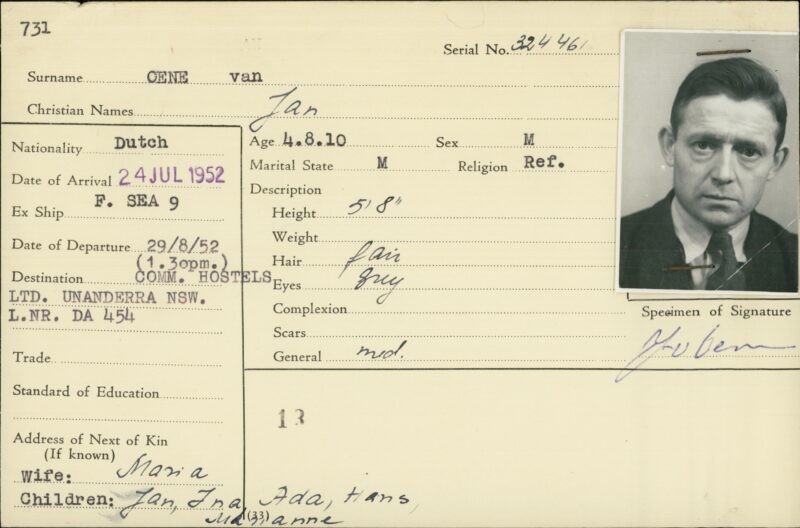 731
Serial No. 324461
Surname OENE van
Christian Names Jan
Nationality Dutch
Date of Arrival 24 JUL 1952
Ex Ship F. SEA 9
Date of Departure 29/8/52
(1.30pm.)
Destination COMM. HOSTELS
LTD. UNANDERRA NSW.
L.NR. DA 454
Trade
Standard of Education
Address of Next of Kin
(If known)
Wife: Maria
Children: Jan, Ina, Ada, Hans,
Marianne
(33)
Age 4.8.10 Sex M
Marital State M Religion Ref.
Description
Height 5'8"
Weight
Hair fair
Eyes grey
Complexion
Scars
General med.
13
Specimen of Signature